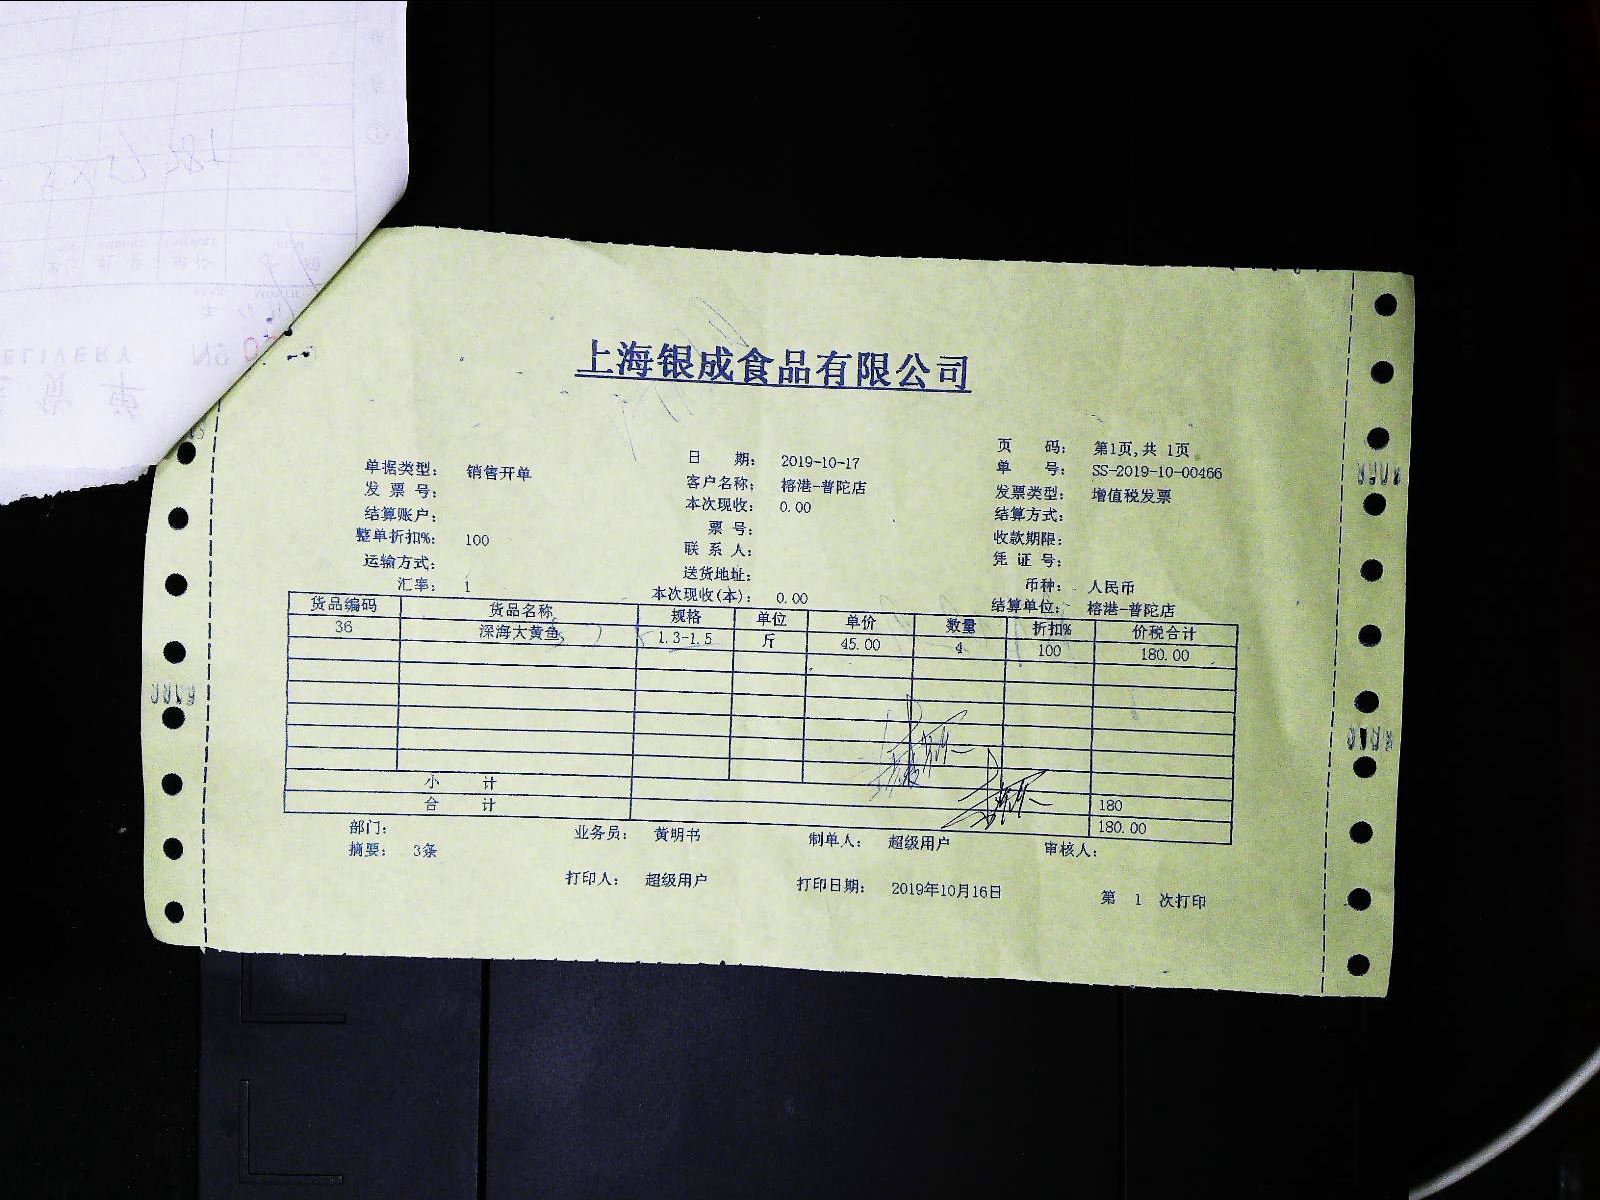 上海银成食品有限公司
页 码： 第1页,共 1页
单据类型： 销售开单 日 期： 2019-10-17 单 号： SS-2019-10-00466
发 票 号： 客户名称： 榕港-普陀店 发票类型： 增值税发票
结算账户： 本次现收： 0.00 结算方式：
整单折扣%： 100 票 号： 收款期限：
运输方式： 联 系 人： 凭 证 号：
汇率： 1 送货地址： 币种： 人民币
本次现收(本)： 0.00 结算单位： 榕港-普陀店
货品编码 货品名称 规格 单位 单价 数量 折扣% 价税合计
36 深海大黄鱼 1.3-1.5 斤 45.00 4 100 180.00
小 计 180
合 计 180.00
部门： 业务员： 黄明书 制单人： 超级用户 审核人：
摘要： 3条
打印人： 超级用户 打印日期： 2019年10月16日 第 1 次打印